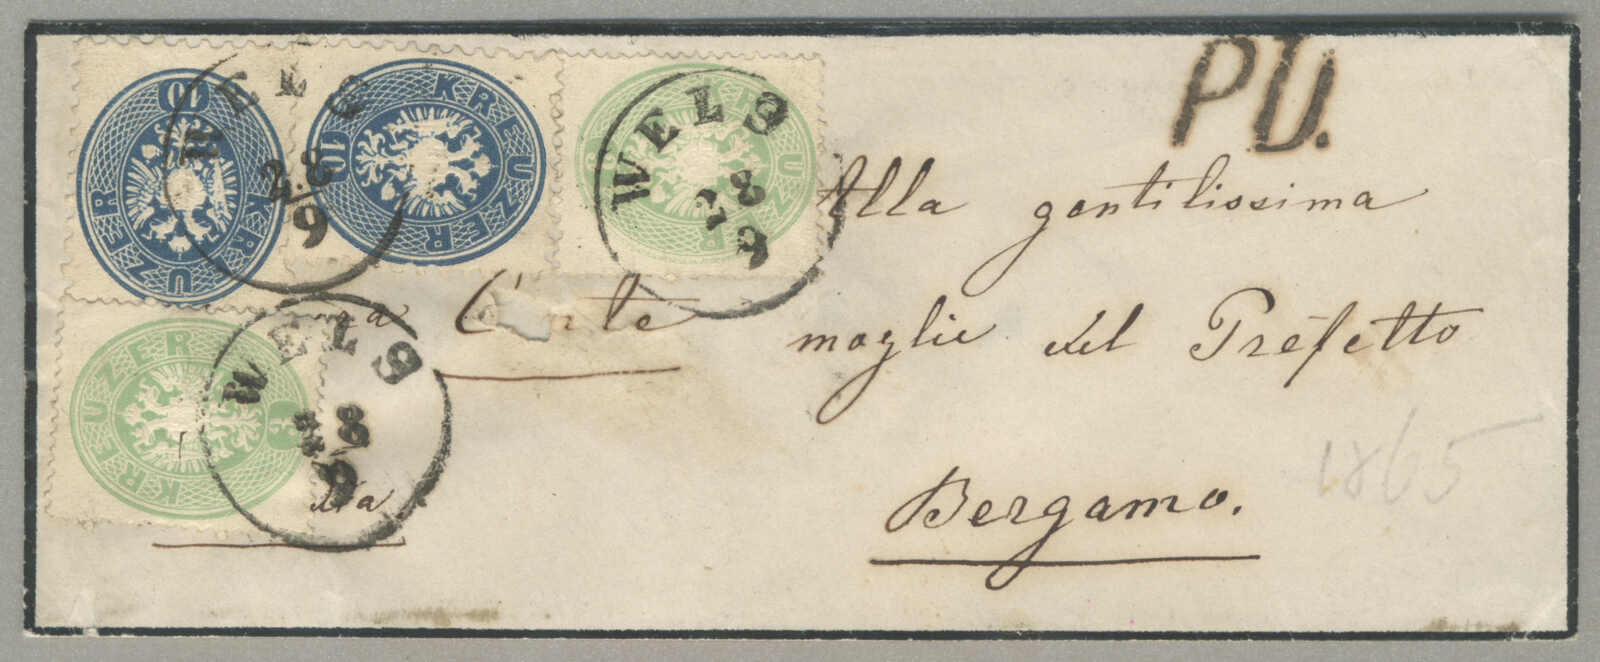 P.D.
WELS
28
9
WELS
28
9
WELS
28
9
10 KREUZER
10 KREUZER
KREUZER
3 KREUZER
Alla gentilissima
moglie del Prefetto
Bergamo.
1865